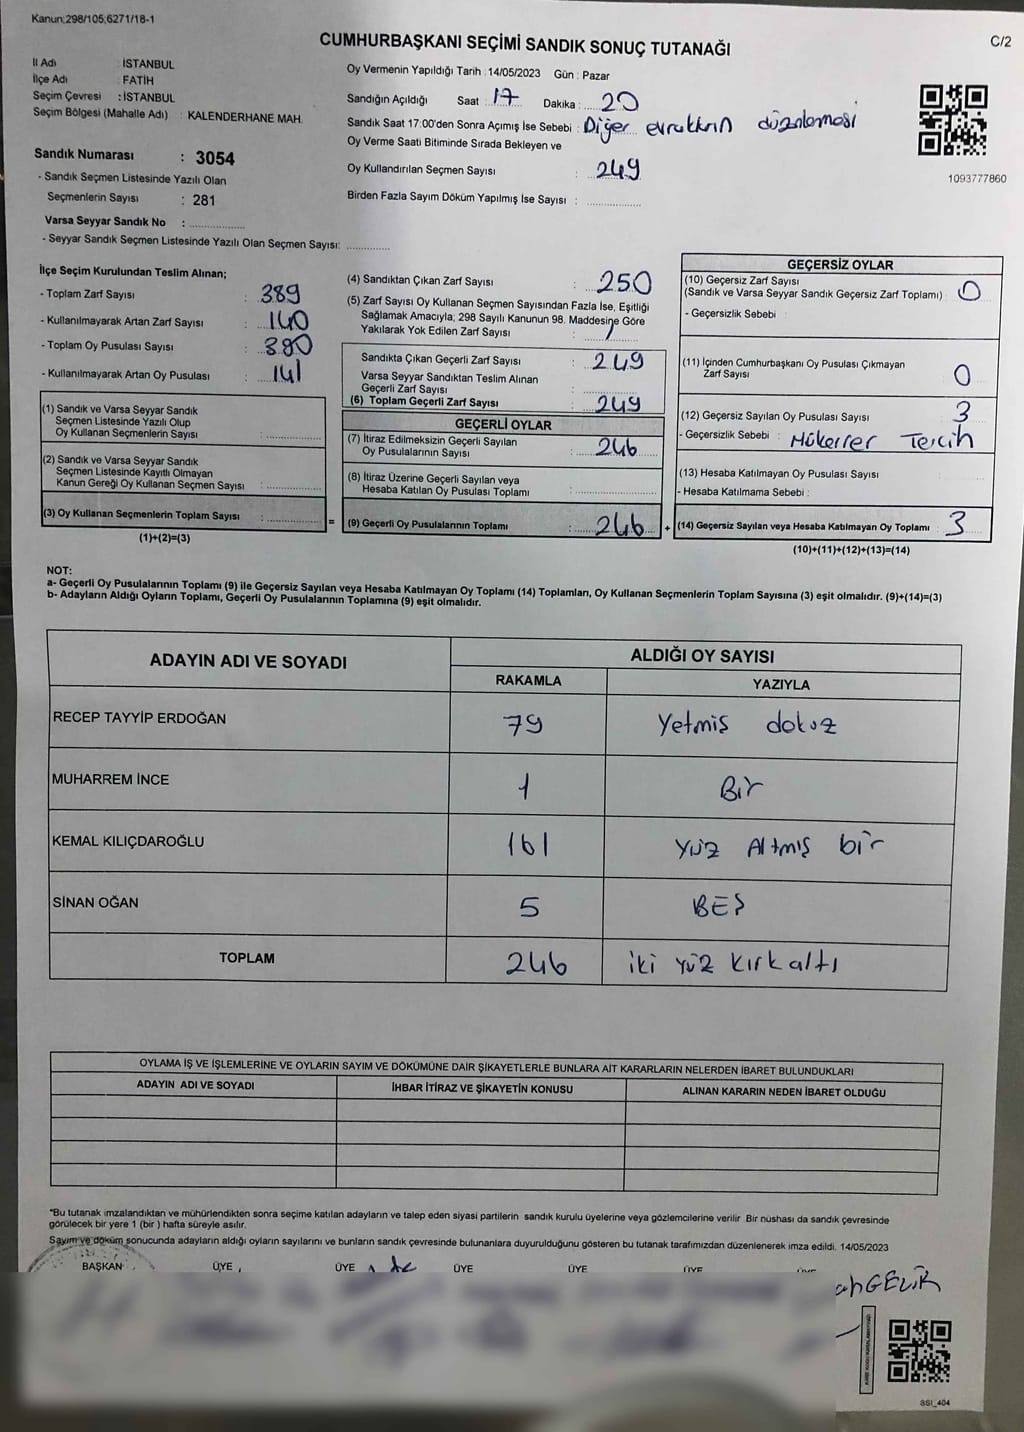 Kanun;298/105;6271/18-1
CUMHURBAŞKANI SEÇİMİ SANDIK SONUÇ TUTANAĞI
C/2
İl Adı : İSTANBUL
İlçe Adı : FATİH
Seçim Çevresi : İSTANBUL
Seçim Bölgesi (Mahalle Adı) : KALENDERHANE MAH.
Sandık Numarası : 3054
- Sandık Seçmen Listesinde Yazılı Olan
Seçmenlerin Sayısı : 281
Varsa Seyyar Sandık No :
- Seyyar Sandık Seçmen Listesinde Yazılı Olan Seçmen Sayısı:
Oy Vermenin Yapıldığı Tarih : 14/05/2023 Gün : Pazar
Sandığın Açıldığı Saat : 17 Dakika : 20
Sandık Saat 17:00'den Sonra Açımış İse Sebebi : Diğer evrakların düzenlemesi
Oy Verme Saati Bitiminde Sırada Bekleyen ve
Oy Kullandırılan Seçmen Sayısı : 249
Birden Fazla Sayım Döküm Yapılmış İse Sayısı :
1093777860
İlçe Seçim Kurulundan Teslim Alınan;
- Toplam Zarf Sayısı : 389
- Kullanılmayarak Artan Zarf Sayısı : 140
- Toplam Oy Pusulası Sayısı : 390
- Kullanılmayarak Artan Oy Pusulası : 141
(1) Sandık ve Varsa Seyyar Sandık
Seçmen Listesinde Yazılı Olup
Oy Kullanan Seçmenlerin Sayısı :
(2) Sandık ve Varsa Seyyar Sandık
Seçmen Listesinde Kayıtlı Olmayan
Kanun Gereği Oy Kullanan Seçmen Sayısı :
(3) Oy Kullanan Seçmenlerin Toplam Sayısı :
(1)+(2)=(3)
=
(4) Sandıktan Çıkan Zarf Sayısı : 250
(5) Zarf Sayısı Oy Kullanan Seçmen Sayısından Fazla İse, Eşitliği
Sağlamak Amacıyla; 298 Sayılı Kanunun 98. Maddesine Göre
Yakılarak Yok Edilen Zarf Sayısı : 1
Sandıkta Çıkan Geçerli Zarf Sayısı : 249
Varsa Seyyar Sandıktan Teslim Alınan
Geçerli Zarf Sayısı :
(6) Toplam Geçerli Zarf Sayısı : 249
GEÇERLİ OYLAR
(7) İtiraz Edilmeksizin Geçerli Sayılan
Oy Pusulalarının Sayısı : 246
(8) İtiraz Üzerine Geçerli Sayılan veya
Hesaba Katılan Oy Pusulası Toplamı :
(9) Geçerli Oy Pusulalarının Toplamı : 246
+
GEÇERSİZ OYLAR
(10) Geçersiz Zarf Sayısı
(Sandık ve Varsa Seyyar Sandık Geçersiz Zarf Toplamı) : 0
- Geçersizlik Sebebi :
(11) İçinden Cumhurbaşkanı Oy Pusulası Çıkmayan
Zarf Sayısı : 0
(12) Geçersiz Sayılan Oy Pusulası Sayısı : 3
- Geçersizlik Sebebi : Mükerrer Tercih
(13) Hesaba Katılmayan Oy Pusulası Sayısı :
- Hesaba Katılmama Sebebi :
(14) Geçersiz Sayılan veya Hesaba Katılmayan Oy Toplamı : 3
(10)+(11)+(12)+(13)=(14)
NOT:
a- Geçerli Oy Pusulalarının Toplamı (9) ile Geçersiz Sayılan veya Hesaba Katılmayan Oy Toplamı (14) Toplamları, Oy Kullanan Seçmenlerin Toplam Sayısına (3) eşit olmalıdır. (9)+(14)=(3)
b- Adayların Aldığı Oyların Toplamı, Geçerli Oy Pusulalarının Toplamına (9) eşit olmalıdır.
ADAYIN ADI VE SOYADI ALDIĞI OY SAYISI
RAKAMLA YAZIYLA
RECEP TAYYİP ERDOĞAN 79 Yetmiş dokuz
MUHARREM İNCE 1 Bir
KEMAL KILIÇDAROĞLU 161 Yüz Altmış bir
SİNAN OĞAN 5 BEŞ
TOPLAM 246 iki yüz kırkaltı
OYLAMA İŞ VE İŞLEMLERİNE VE OYLARIN SAYIM VE DÖKÜMÜNE DAİR ŞİKAYETLERLE BUNLARA AİT KARARLARIN NELERDEN İBARET BULUNDUKLARI
ADAYIN ADI VE SOYADI İHBAR İTİRAZ VE ŞİKAYETİN KONUSU ALINAN KARARIN NEDEN İBARET OLDUĞU
*Bu tutanak imzalandıktan ve mühürlendikten sonra seçime katılan adayların ve talep eden siyasi partilerin sandık kurulu üyelerine veya gözlemcilerine verilir. Bir nüshası da sandık çevresinde
görülecek bir yere 1 (bir) hafta süreyle asılır.
Sayım ve döküm sonucunda adayların aldığı oyların sayılarını ve bunların sandık çevresinde bulunanlara duyurulduğunu gösteren bu tutanak tarafımızdan düzenlenerek imza edildi. 14/05/2023
BAŞKAN ÜYE ÜYE ÜYE ÜYE ÜYE
GELİR
SSI_404